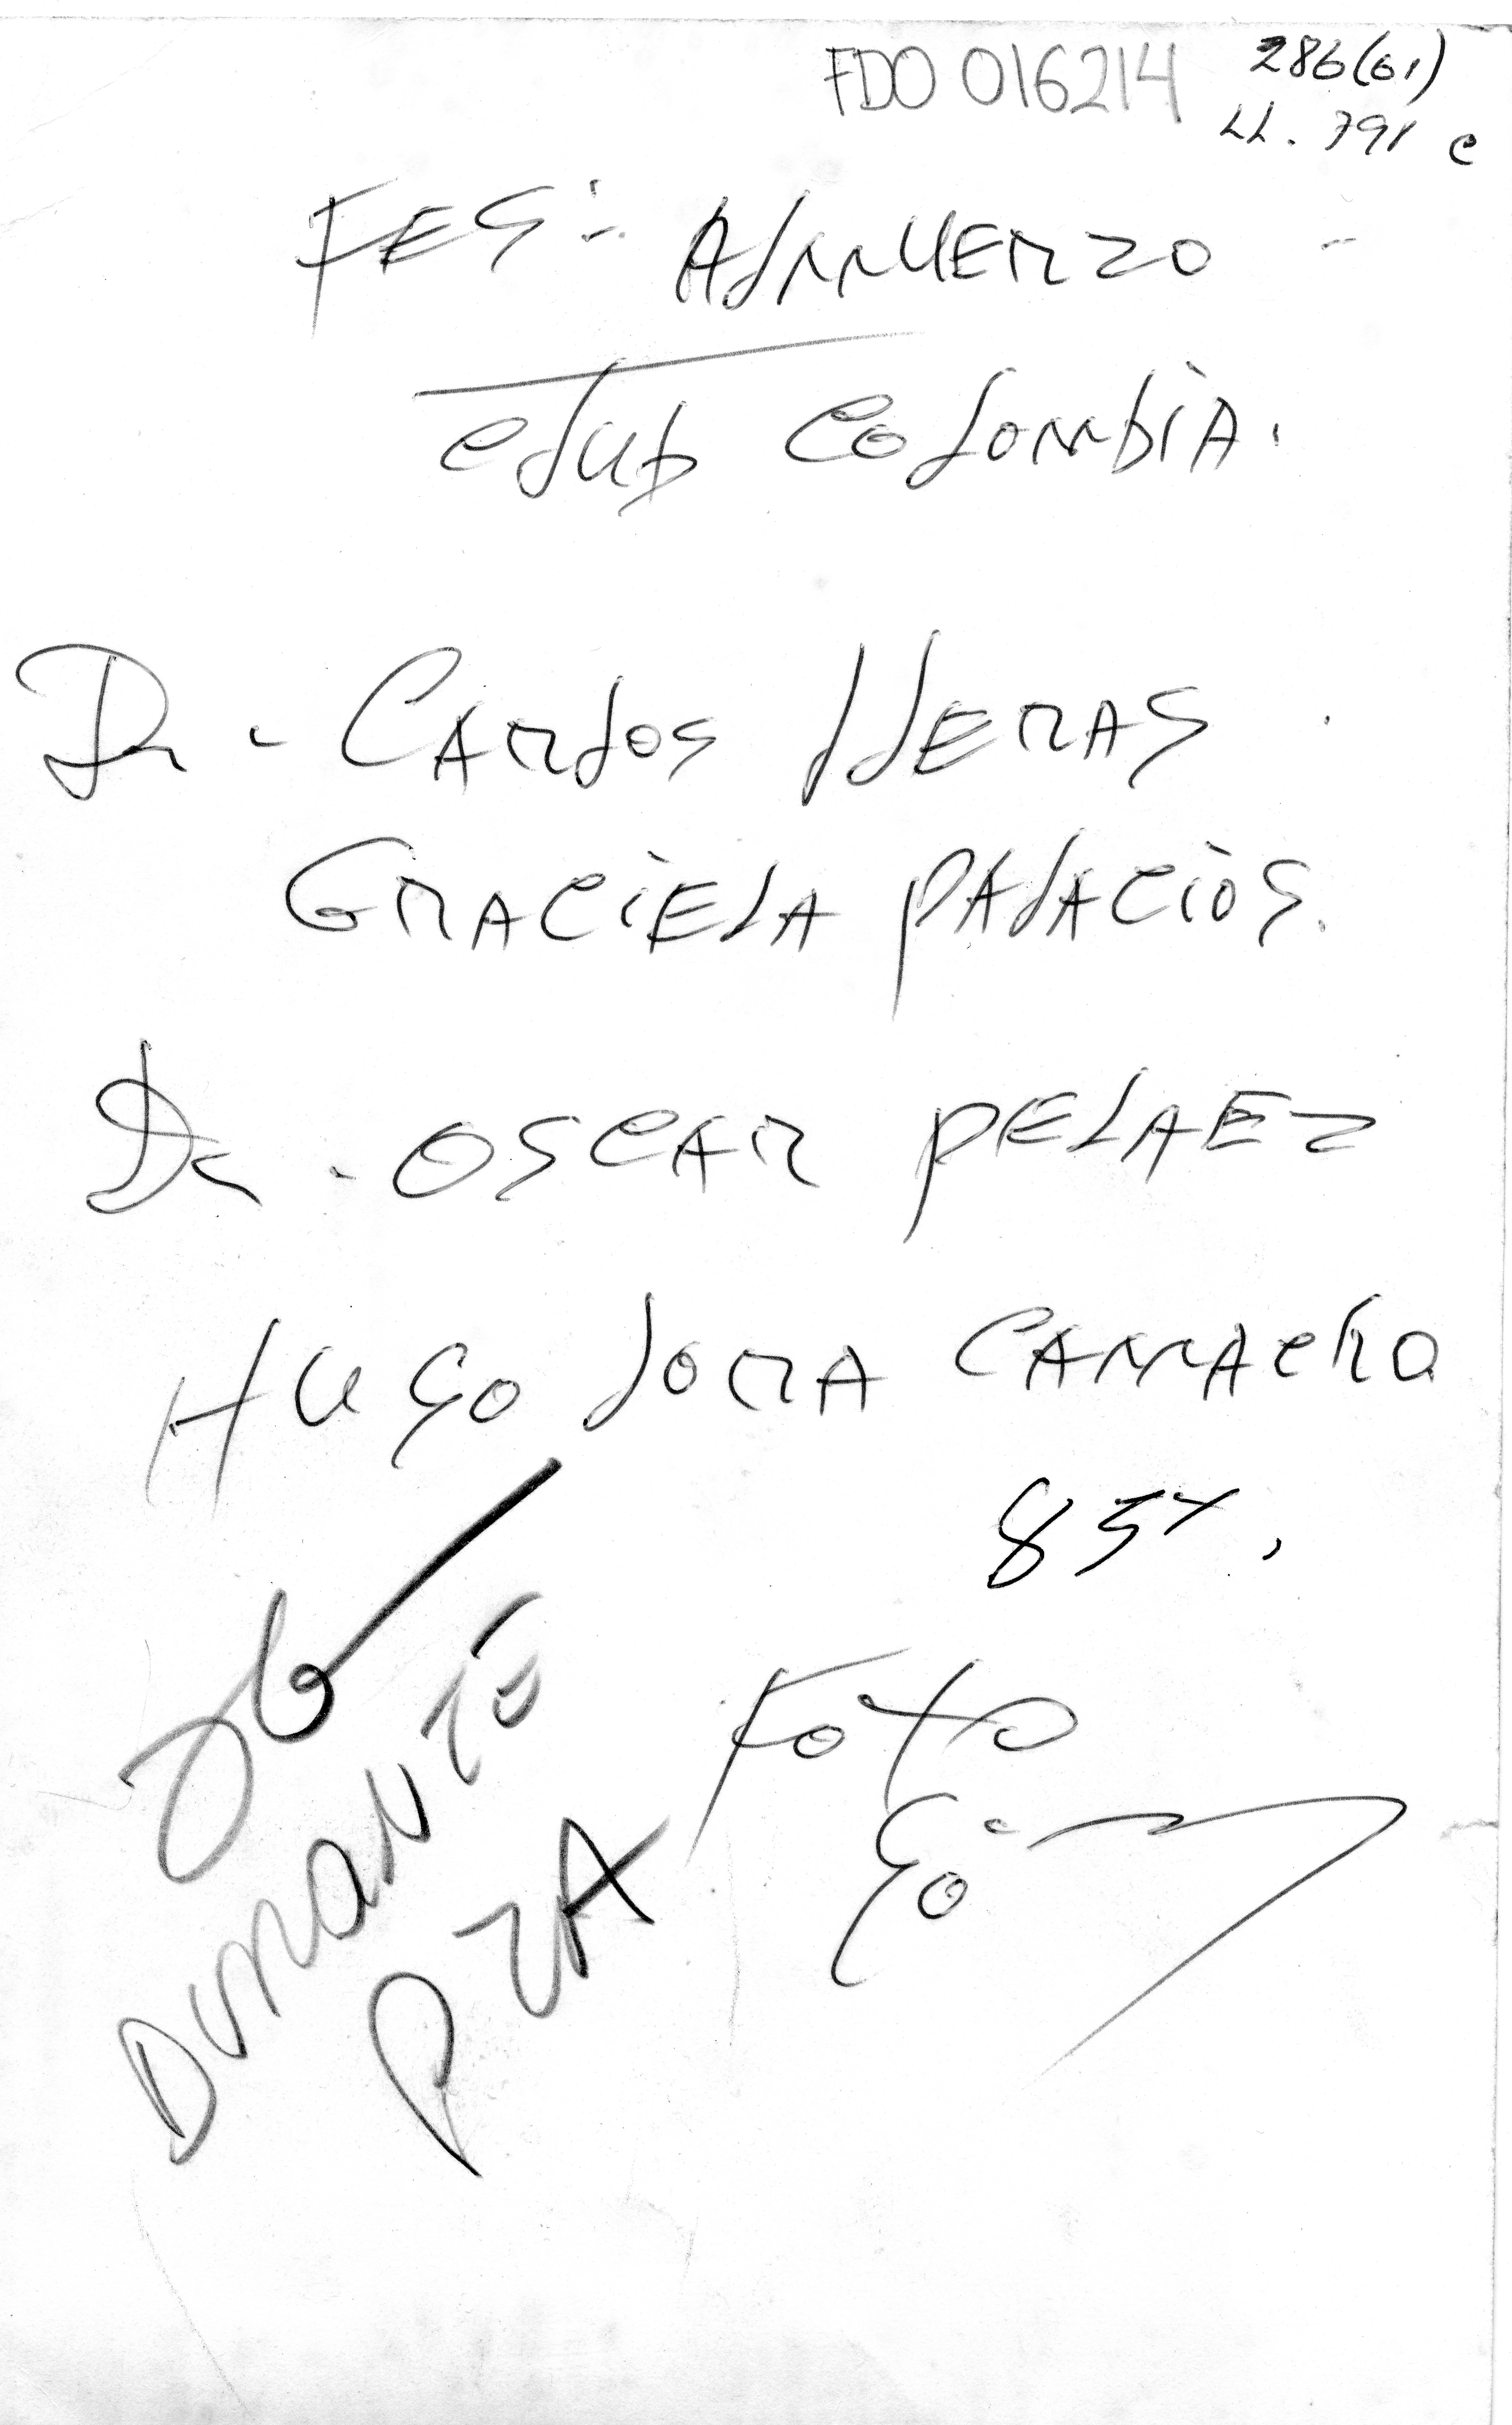 FDO 016214
286(61)
LL. 791 c
FES:- Almuerzo -
club Colombia.
Dr. - Carlos lleras.
Graciela palacios.
Dr. oscar pelaez
Hugo lora camacho
85%.
Foto
Durante